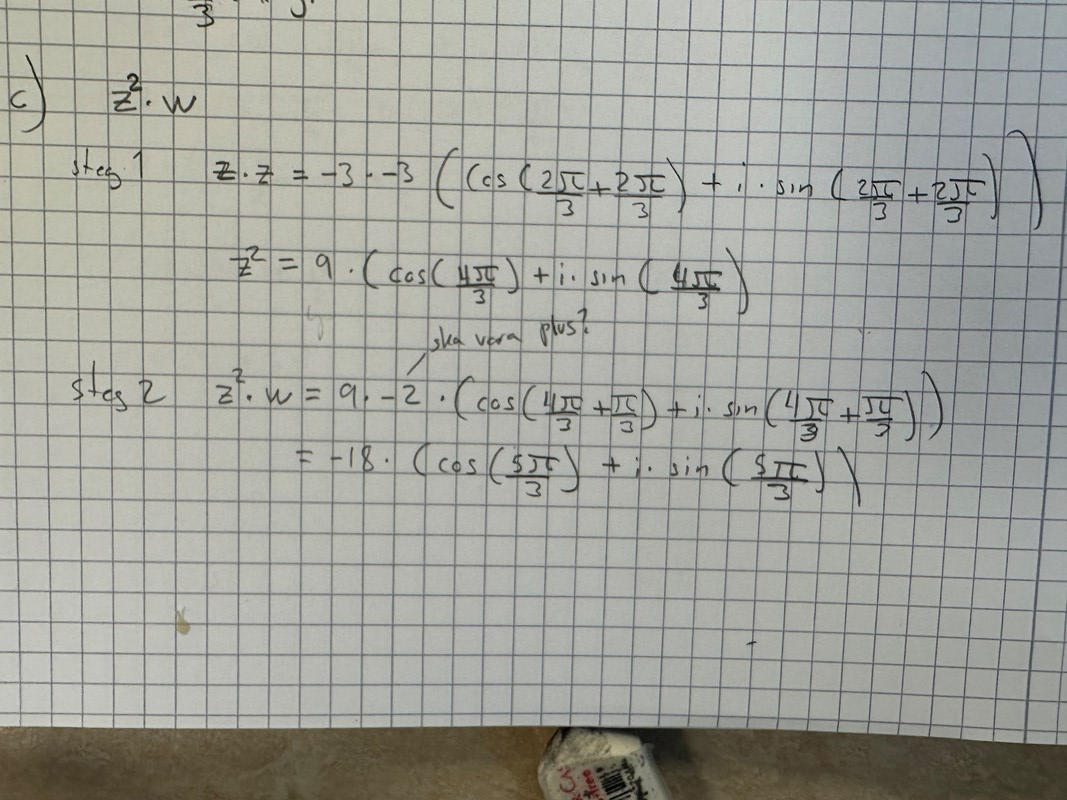 3
c) z² · w
steg 1 z · z = -3 · -3 ((cos(2π/3 + 2π/3) + i · sin(2π/3 + 2π/3)))
z² = 9 · (cos(4π/3) + i · sin(4π/3)
ska vara plus?
steg 2 z² · w = 9 · -2 · (cos(4π/3 + π/3) + i · sin(4π/3 + π/3))
= -18 · (cos(5π/3) + i · sin(5π/3))